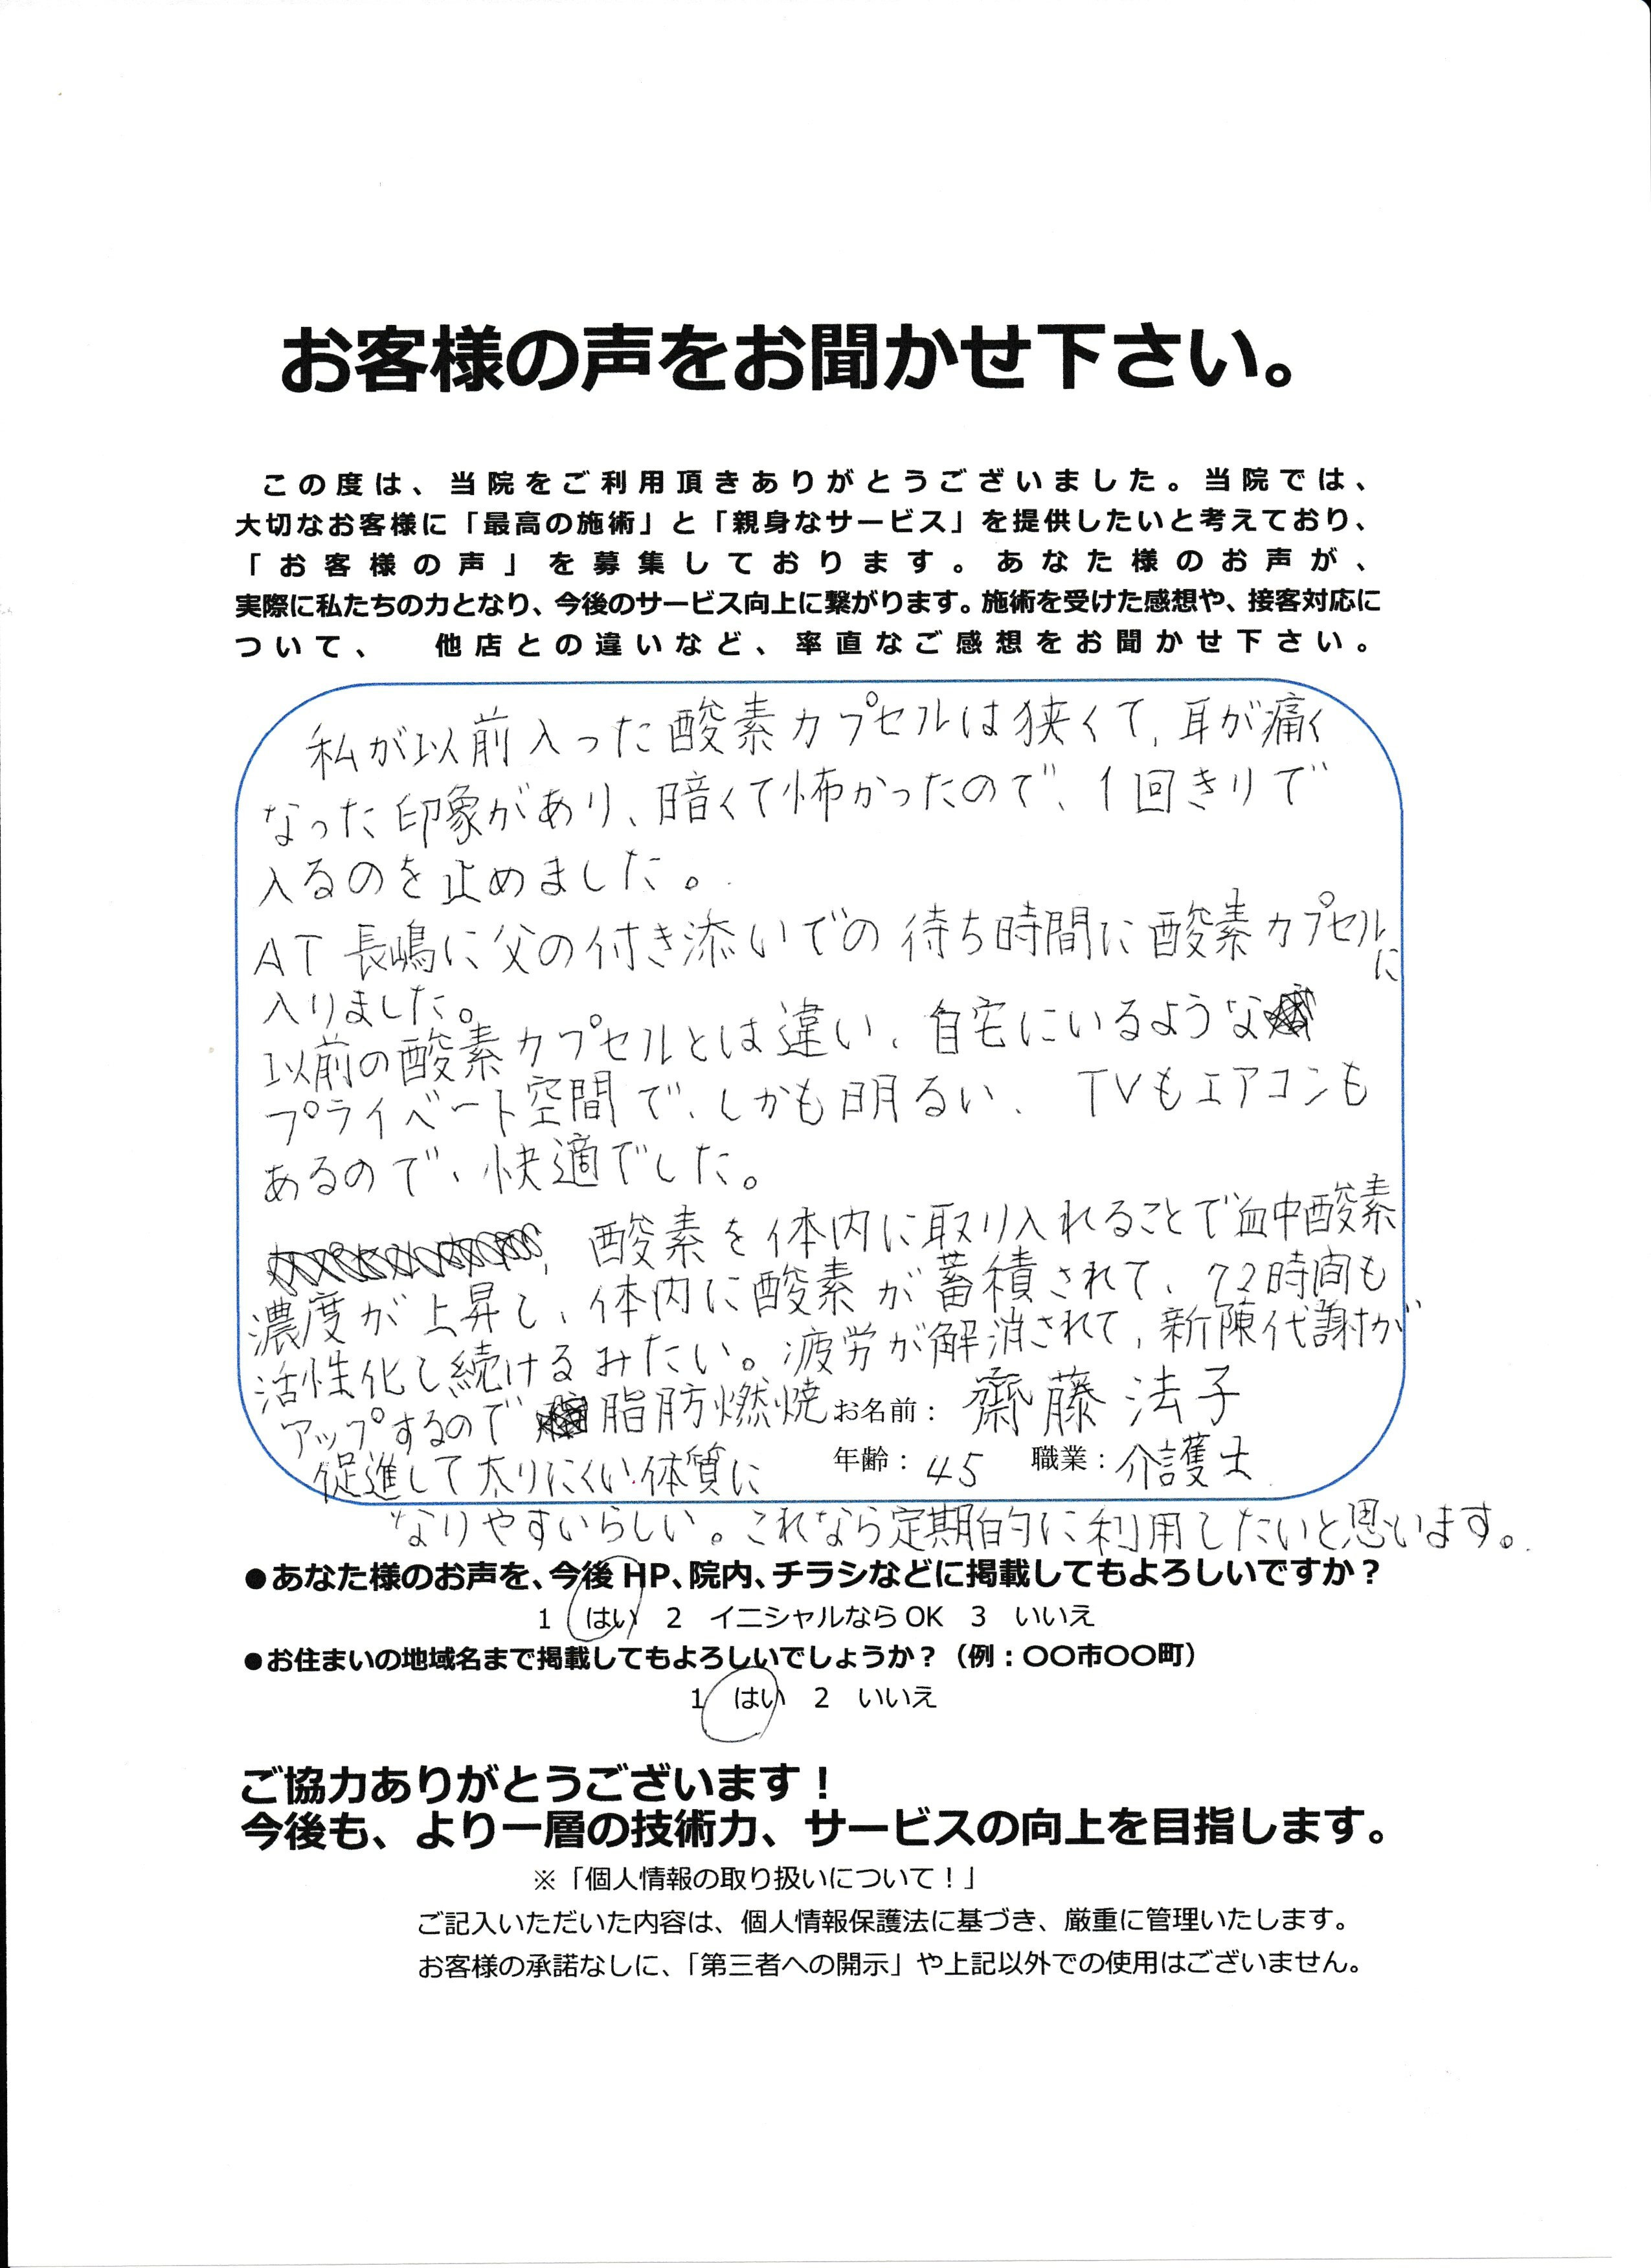 お客様の声をお聞かせ下さい。
この度は、当院をご利用頂きありがとうございました。当院では、
大切なお客様に「最高の施術」と「親身なサービス」を提供したいと考えており、
「お客様の声」を募集しております。あなた様のお声が、
実際に私たちの力となり、今後のサービス向上に繋がります。施術を受けた感想や、接客対応に
ついて、 他店との違いなど、率直なご感想をお聞かせ下さい。
私が以前入った酸素カプセルは狭くて、耳が痛く
なった印象があり、暗くて怖かったので、1回きりで
入るのを止めました。
AT長嶋に父の付き添いでの待ち時間に酸素カプセルに
入りました。
以前の酸素カプセルとは違い、自宅にいるような
プライベート空間で、しかも明るい、TVもエアコンも
あるので、快適でした。
酸素を体内に取り入れることで血中酸素
濃度が上昇し、体内に酸素が蓄積されて、72時間も
活性化し続けるみたい。疲労が解消されて、新陳代謝が
アップするので脂肪燃焼
促進して太りにくい体質に
なりやすいらしい。これなら定期的に利用したいと思います。
お名前：齋藤 法子
年齢：45 職業：介護士
●あなた様のお声を、今後HP、院内、チラシなどに掲載してもよろしいですか？
1 はい 2 イニシャルならOK 3 いいえ
●お住まいの地域名まで掲載してもよろしいでしょうか？（例：〇〇市〇〇町）
1 はい 2 いいえ
ご協力ありがとうございます！
今後も、より一層の技術力、サービスの向上を目指します。
※「個人情報の取り扱いについて！」
ご記入いただいた内容は、個人情報保護法に基づき、厳重に管理いたします。
お客様の承諾なしに、「第三者への開示」や上記以外での使用はございません。